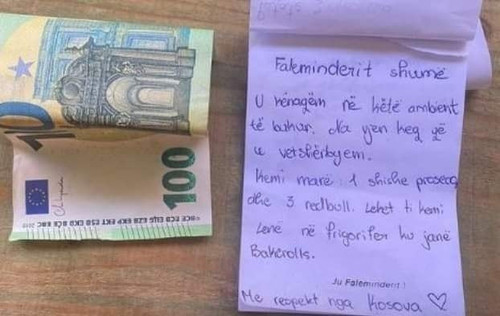 100
Faleminderit shumë
U kënaqëm në këtë ambient
të bukur. Na vjen keq që
u vetshërbyem.
Kemi marë: 1 shishe prosecco
dhe 3 redbull. Lekët ti kemi
lënë në frigorifer ku janë
Bakerolls.
Ju Faleminderit !
Me respekt nga Kosova ♡